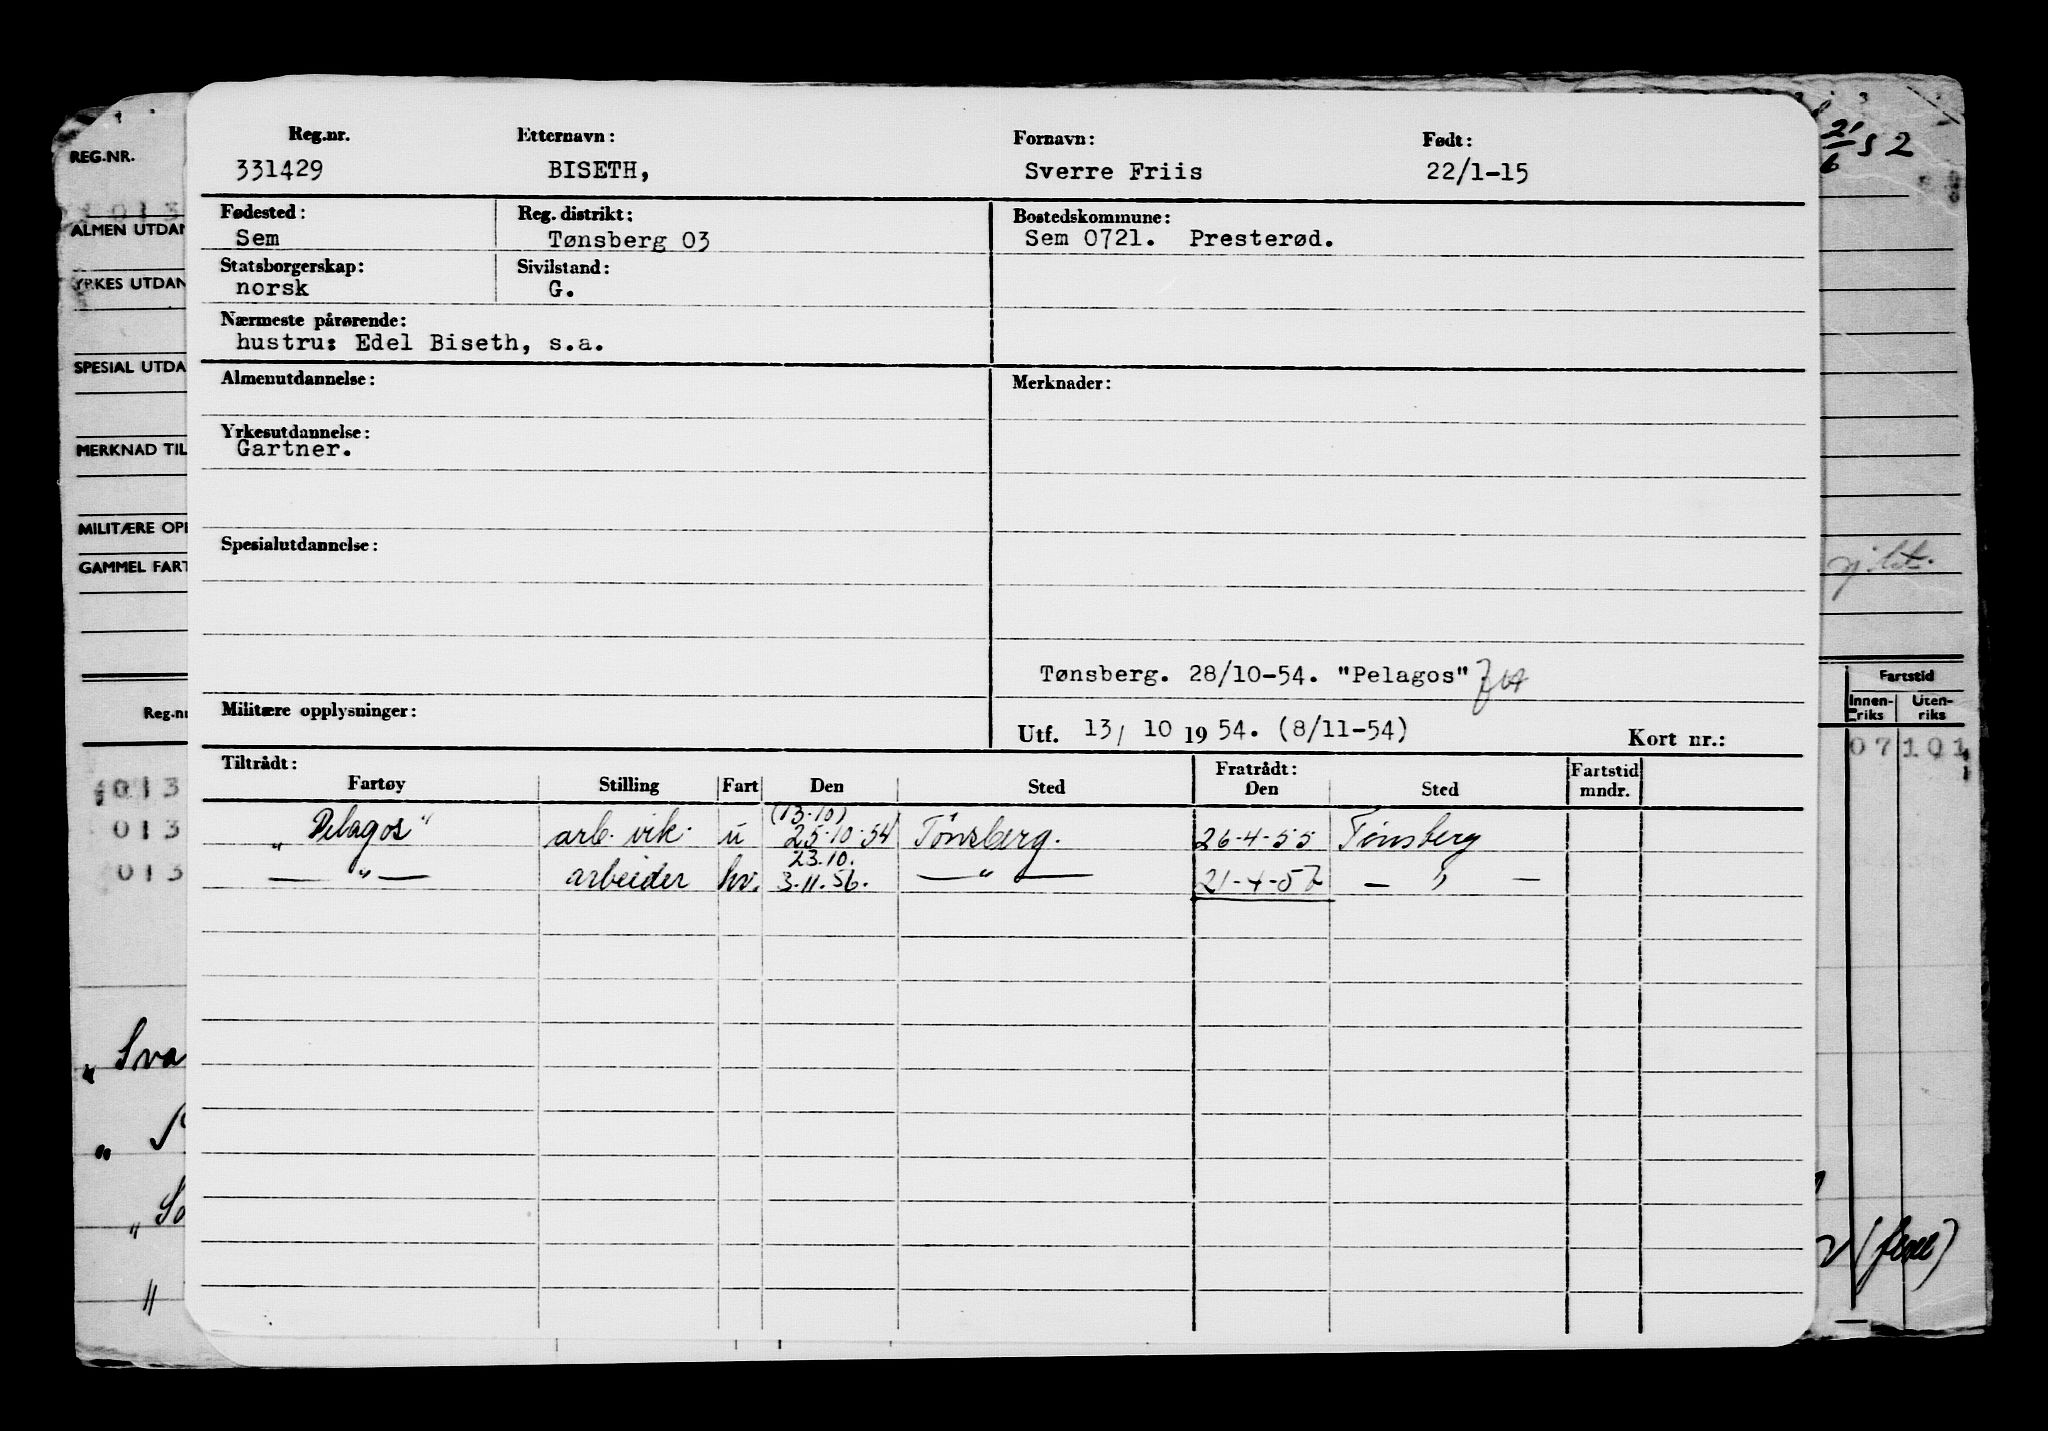 Reg.nr. Etternavn: Fornavn: Født:
331429 BISETH, Sverre Friis 22/1-15
Fødested: Reg. distrikt: Bostedskommune:
Sem Tønsberg 03 Sem 0721. Presterød.
Statsborgerskap: Sivilstand:
norsk G.
Nærmeste pårørende:
hustru: Edel Biseth, s.a.
Almenutdannelse: Merknader:
Yrkesutdannelse:
Gartner.
Spesialutdannelse:
Tønsberg. 28/10-54. "Pelagos"
Militære opplysninger:
Utf. 13/ 10 19 54. (8/11-54) Kort nr.:
Tiltrådt: Fratrådt: Fartstid
Fartøy Stilling Fart Den Sted Den Sted mndr.
(13.10)
"Pelagos" arb. vik. u 25.10.54 Tönsberg. 26-4-55 Tönsberg
23.10.
— " — arbeider hv. 3.11.56. — " — 21-4-57 — " —
REG.NR.
013
ALMEN UTDAN
YRKES UTDAN
SPESIAL UTDA
MERKNAD TIL
MILITÆRE OPP
GAMMEL FART
Reg.nr
013
013
013
" Sva
"
" So
"
21/6 52
Fartstid
Innen-riks Uten-riks
07 101